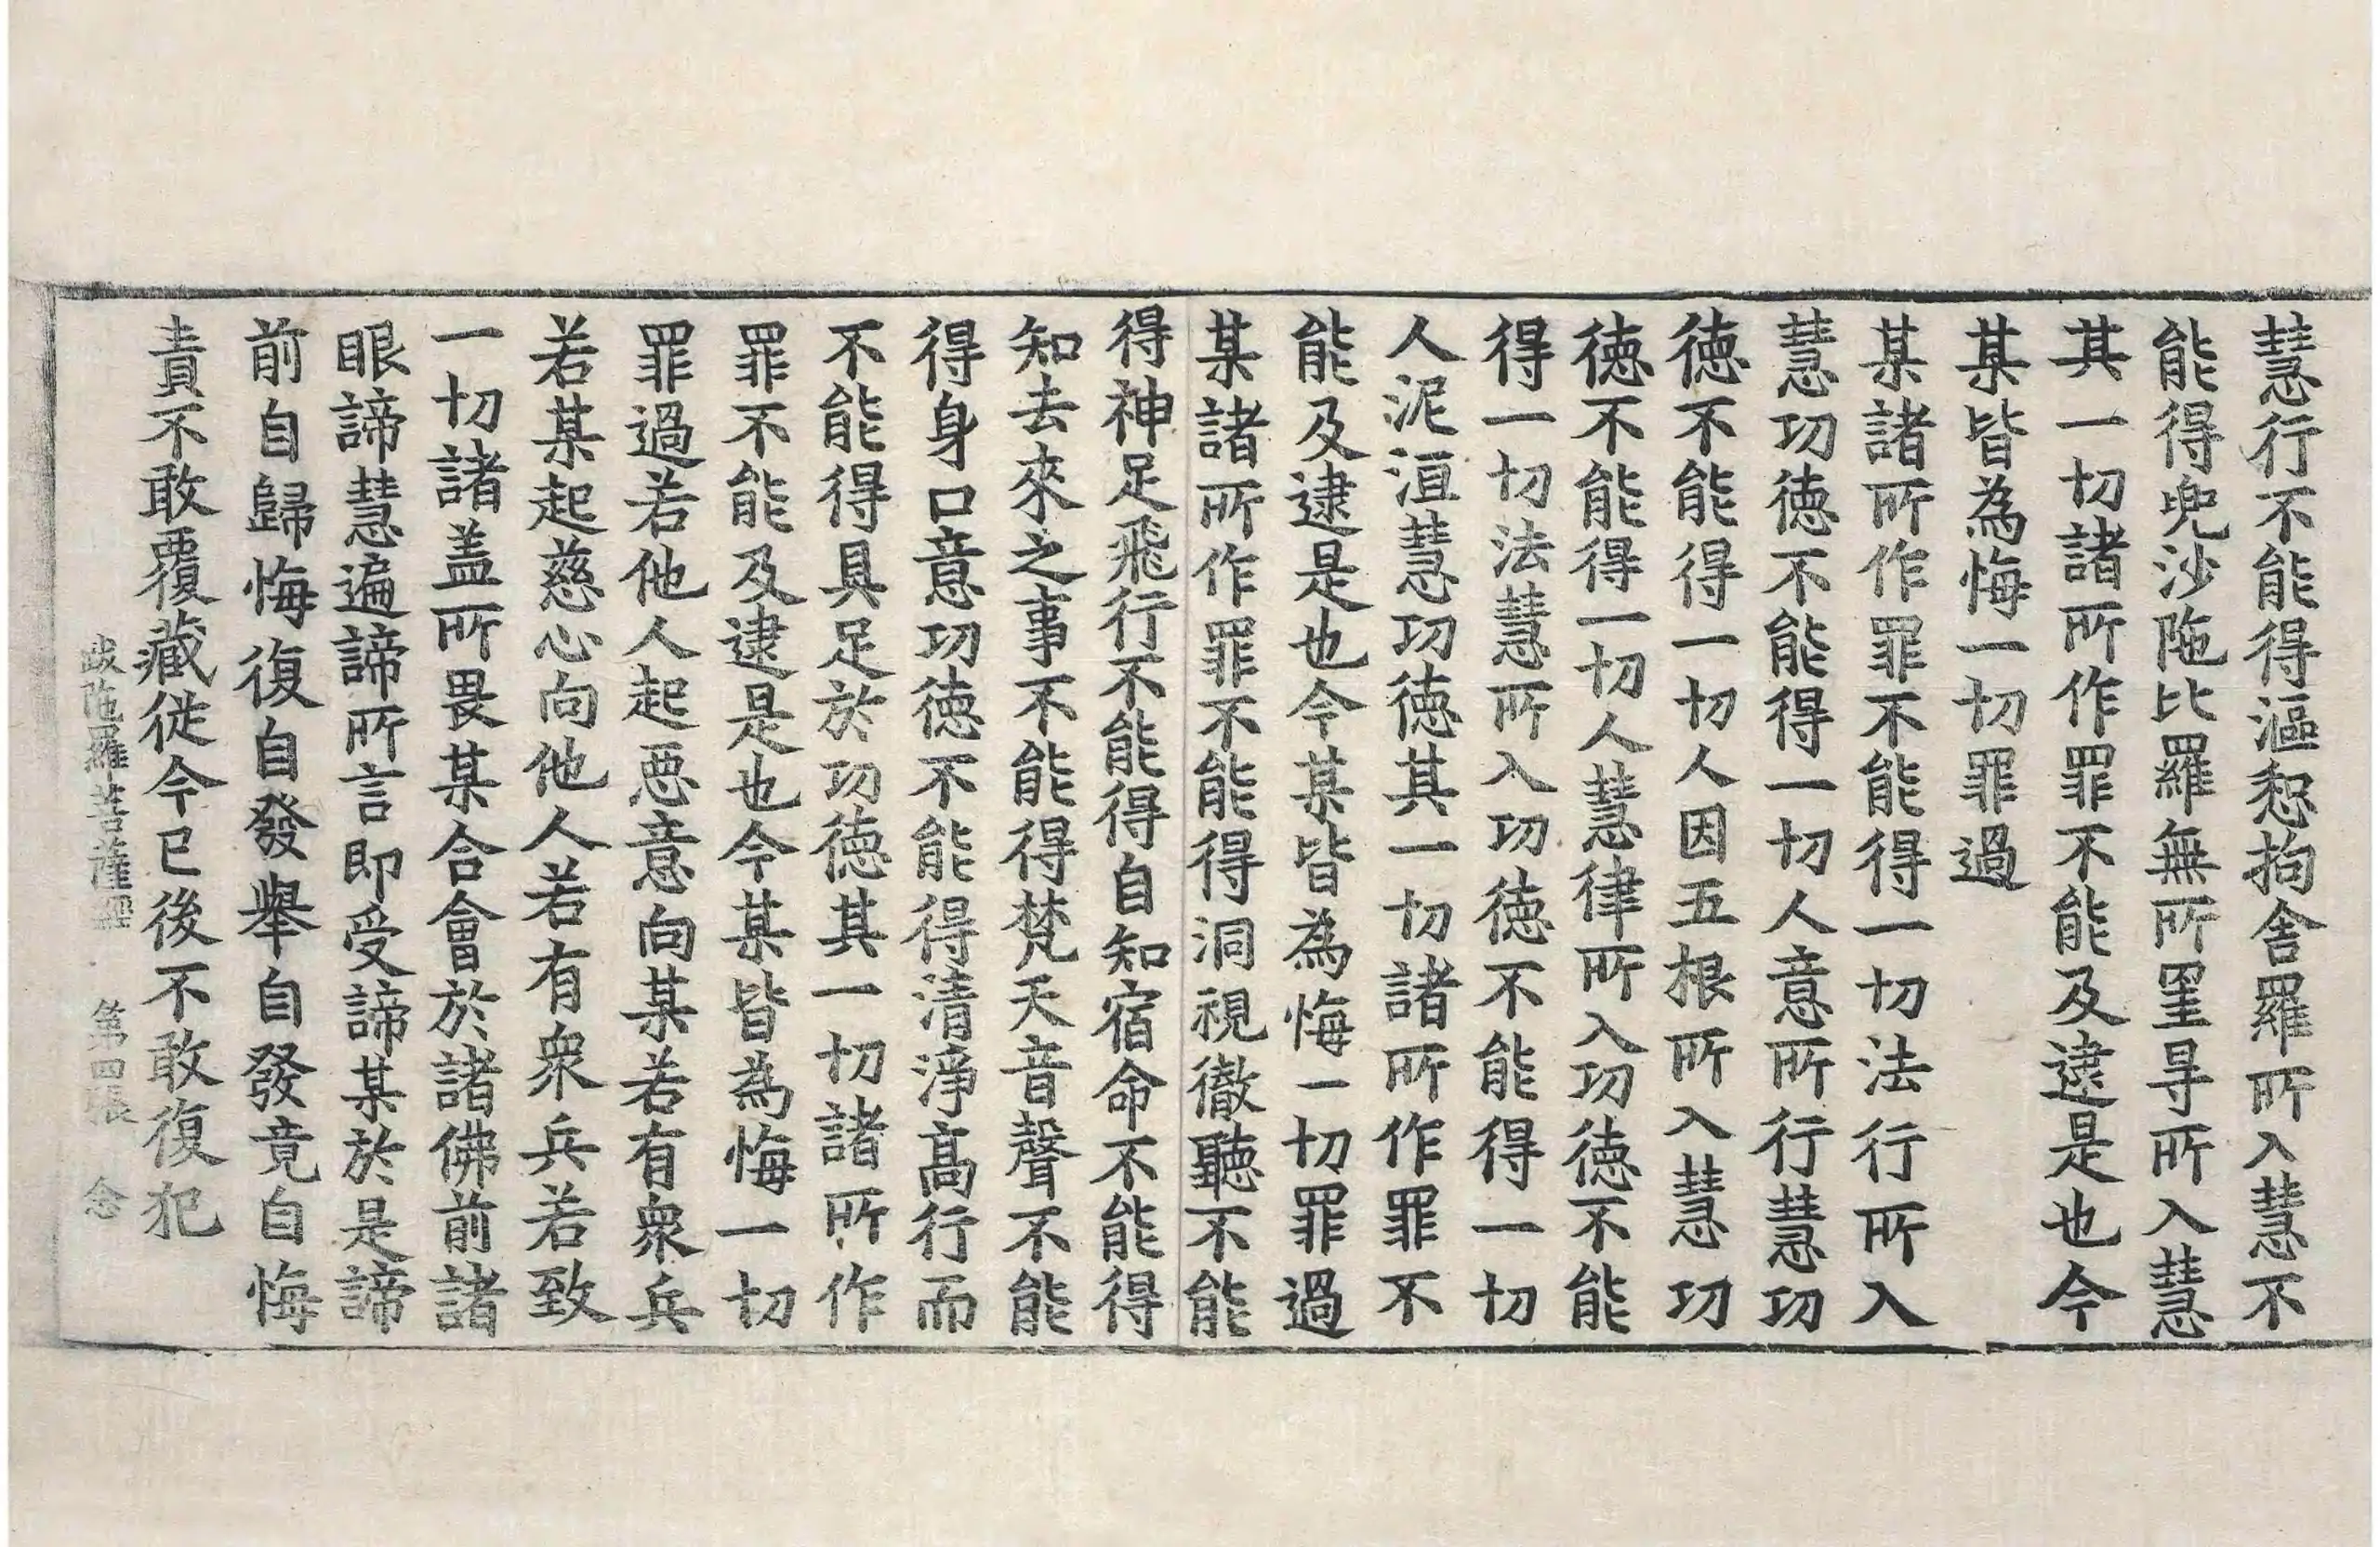 慧行不能得漚惒拘舍羅所入慧不
能得兜沙陁比羅無所罣㝵所入慧
其一切諸所作罪不能及逮是也今
某皆為悔一切罪過
某諸所作罪不能得一切法行所入
慧功徳不能得一切人意所行慧功
徳不能得一切人因五根所入慧功
徳不能得一切人慧律所入功徳不能
得一切法慧所入功徳不能得一切
人泥洹慧功徳其一切諸所作罪不
能及逮是也今某皆為悔一切罪過
某諸所作罪不能得洞視徹聽不能
得神足飛行不能得自知宿命不能得
知去來之事不能得梵天音聲不能
得身口意功徳不能得清淨高行而
不能得具足於功徳其一切諸所作
罪不能及逮是也今某皆為悔一切
罪過若他人起惡意向某若有衆兵
若某起慈心向他人若有衆兵若致
一切諸盖所畏某合會於諸佛前諸
眼諦慧遍諦所言即受諦某於是諦
前自歸悔復自發舉自發竟自悔
責不敢覆藏從今已後不敢復犯
颰陁羅菩薩經 第四張 念